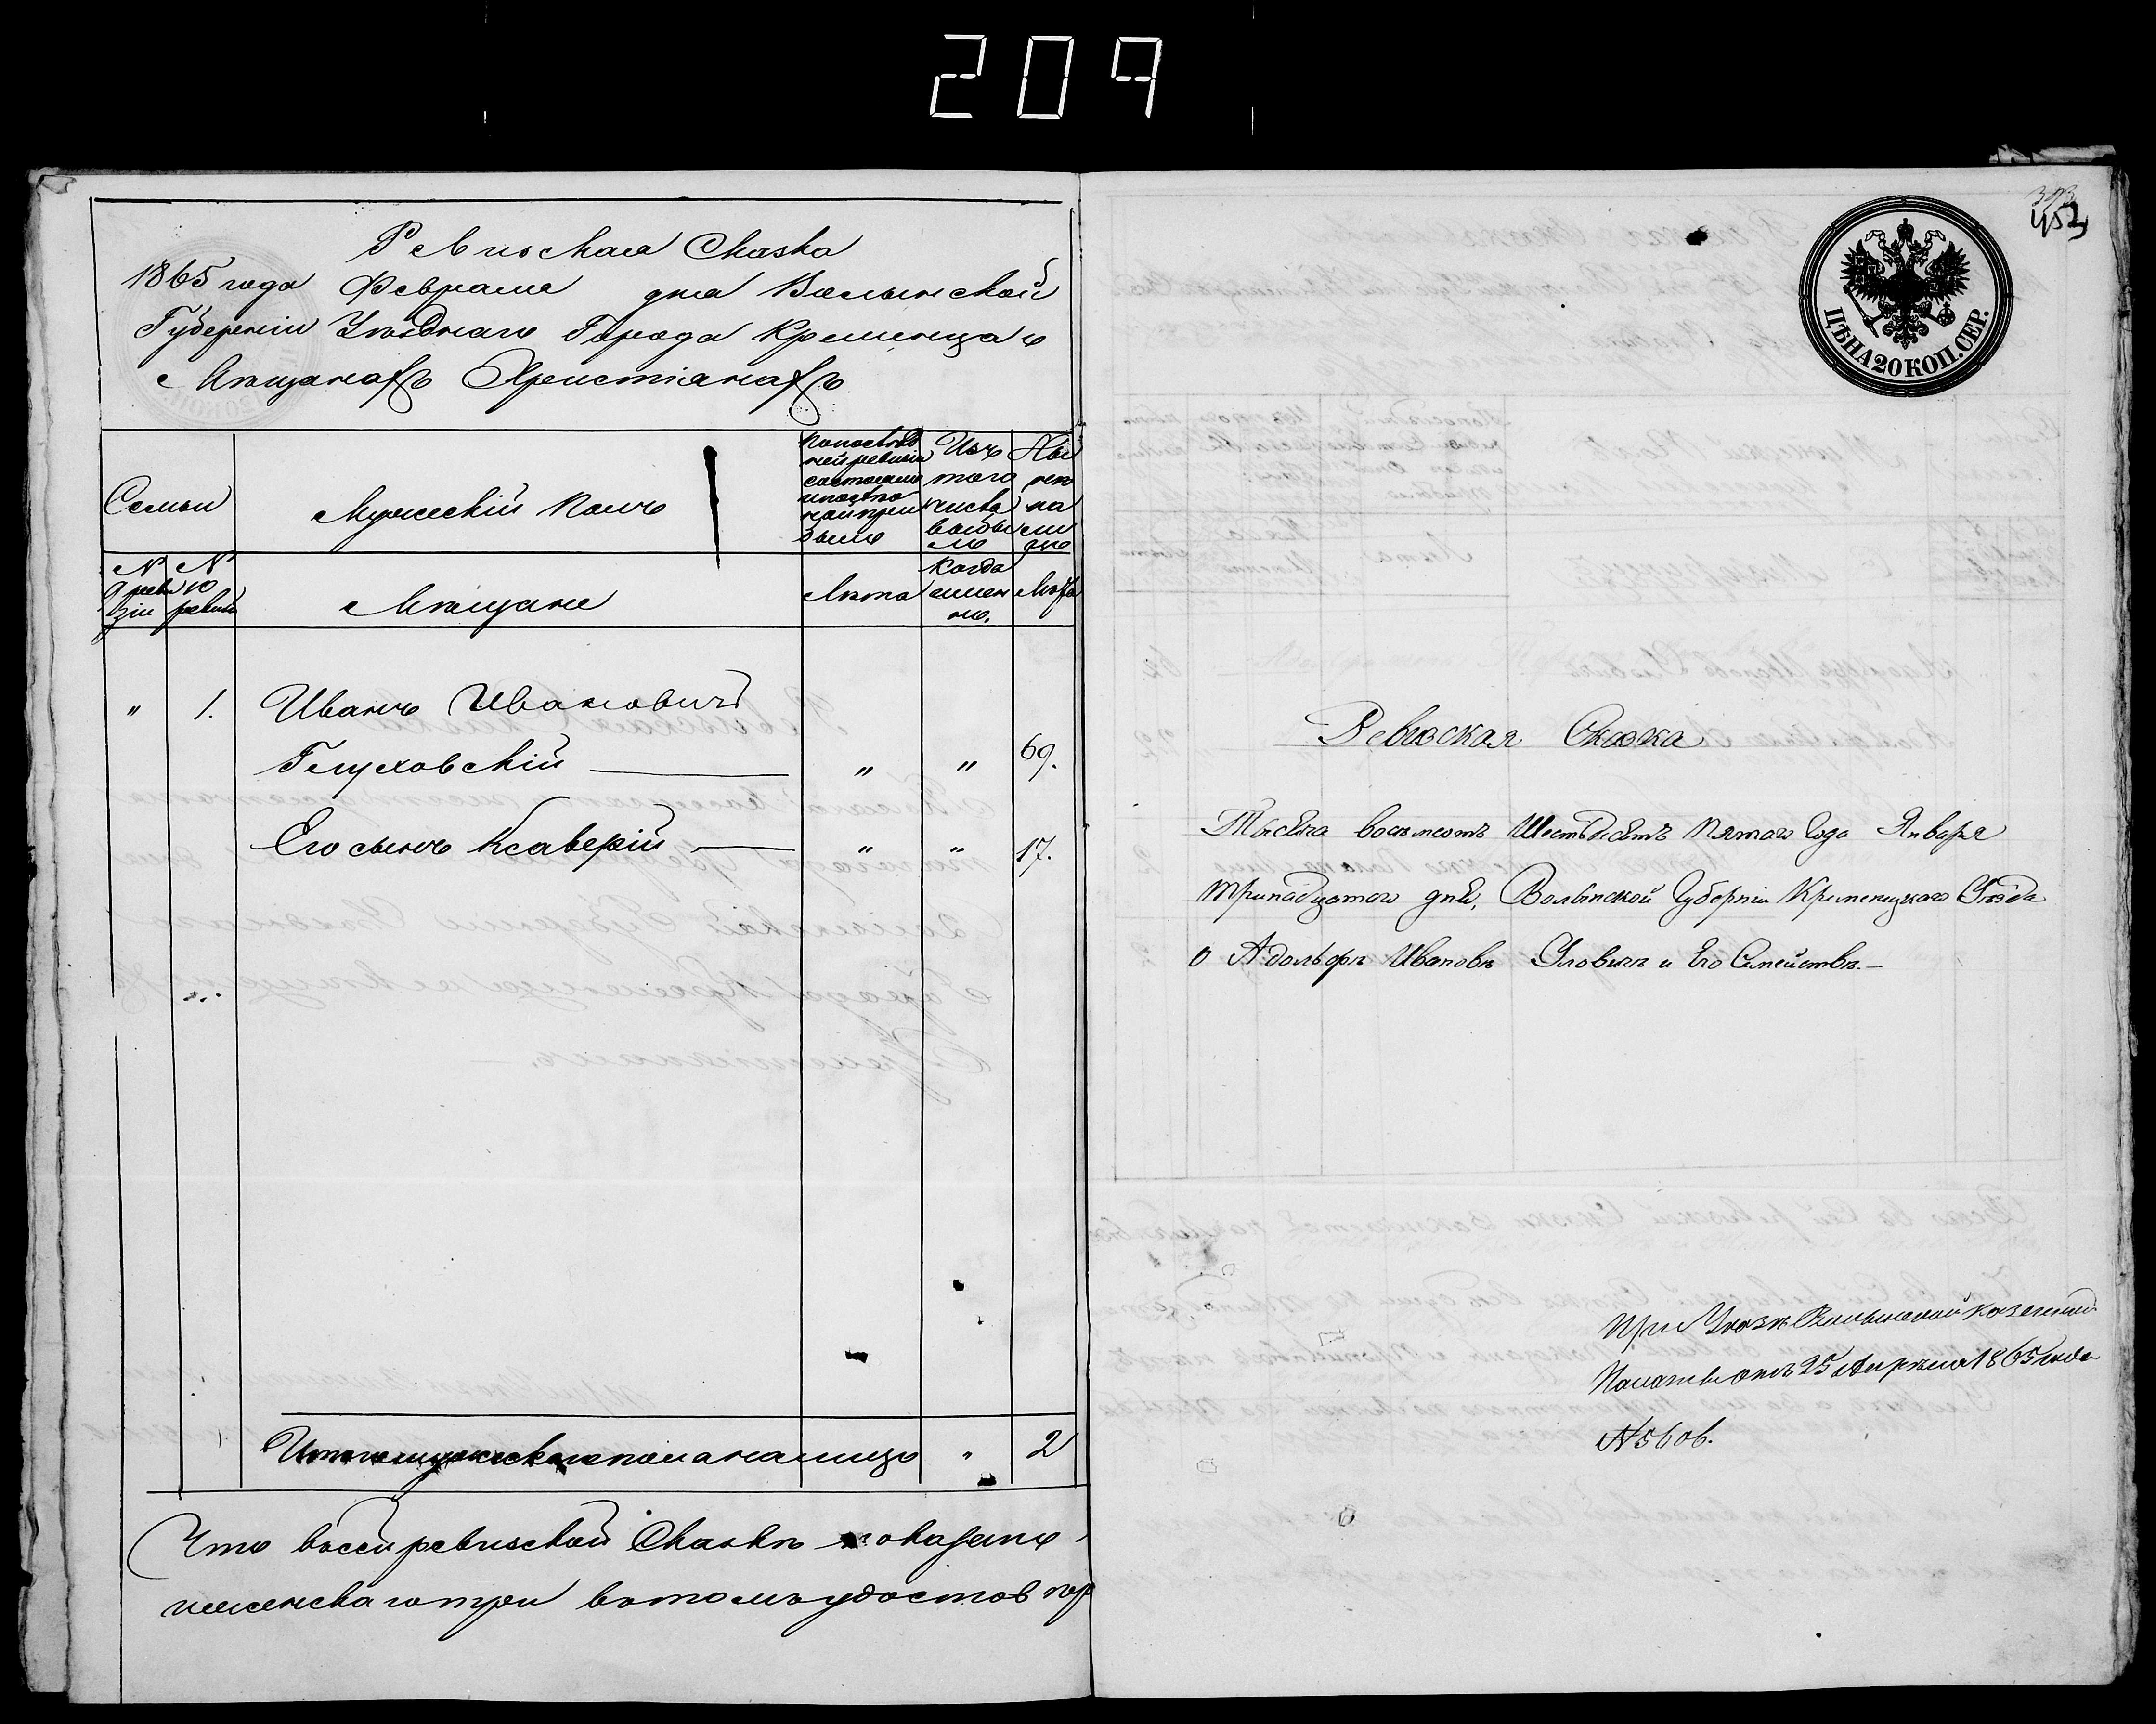 209
Ревизская Сказка
1865 года Февраля дня Волынской
Губерніи Уѣзднаго Города Кременца о
Мѣщанахъ Христіанахъ
Семьи
Мужескій полъ
По послѣд
ней ревизіи
состояло
и послѣ
того при
было
Изъ
того
числа
выбы
ло
Ны
нѣ
на
ли
цо
№ 9 реви
зіи
№ 10
ревизіи
Мѣщане
Лѣта
Когда
имен
но.
Лѣта
" 1. Иванъ Ивановичъ
Глуховскій " " 69.
Его сынъ Ксаверій " " 17.
Итого мужескаго пола на лицо " 2
Что въ сей ревизской Сказкѣ показано
женскаго три въ томъ удостовѣр
453
ЦѢНА 20 КОП. СЕР.
Ревизская Сказка
Тысяча восемсотъ Шестьдесятъ Пятаго Года Января
тринадцатаго дня, Волынской Губерніи Кременецкаго Уѣзда
о Адольфѣ Ивановѣ и Его Семействѣ.—
При Указѣ Волынской казенной
Палаты отъ 25 Апрѣля 1865 года
№ 5606.